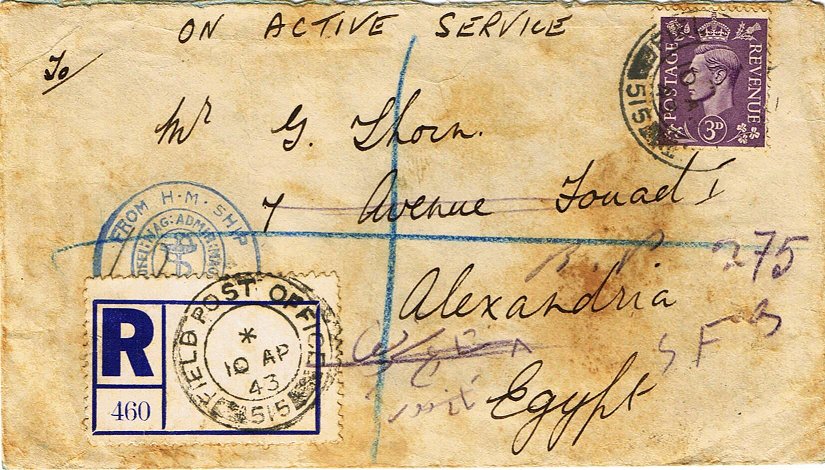 ON ACTIVE SERVICE
POSTAGE REVENUE
3D
515
To
Mr G. Thorn.
7 Avenue Fouad I
FROM H·M·SHIP
275
Alexandria
S F B
Egypt
R
460
FIELD POST OFFICE
*
10 AP
43
515